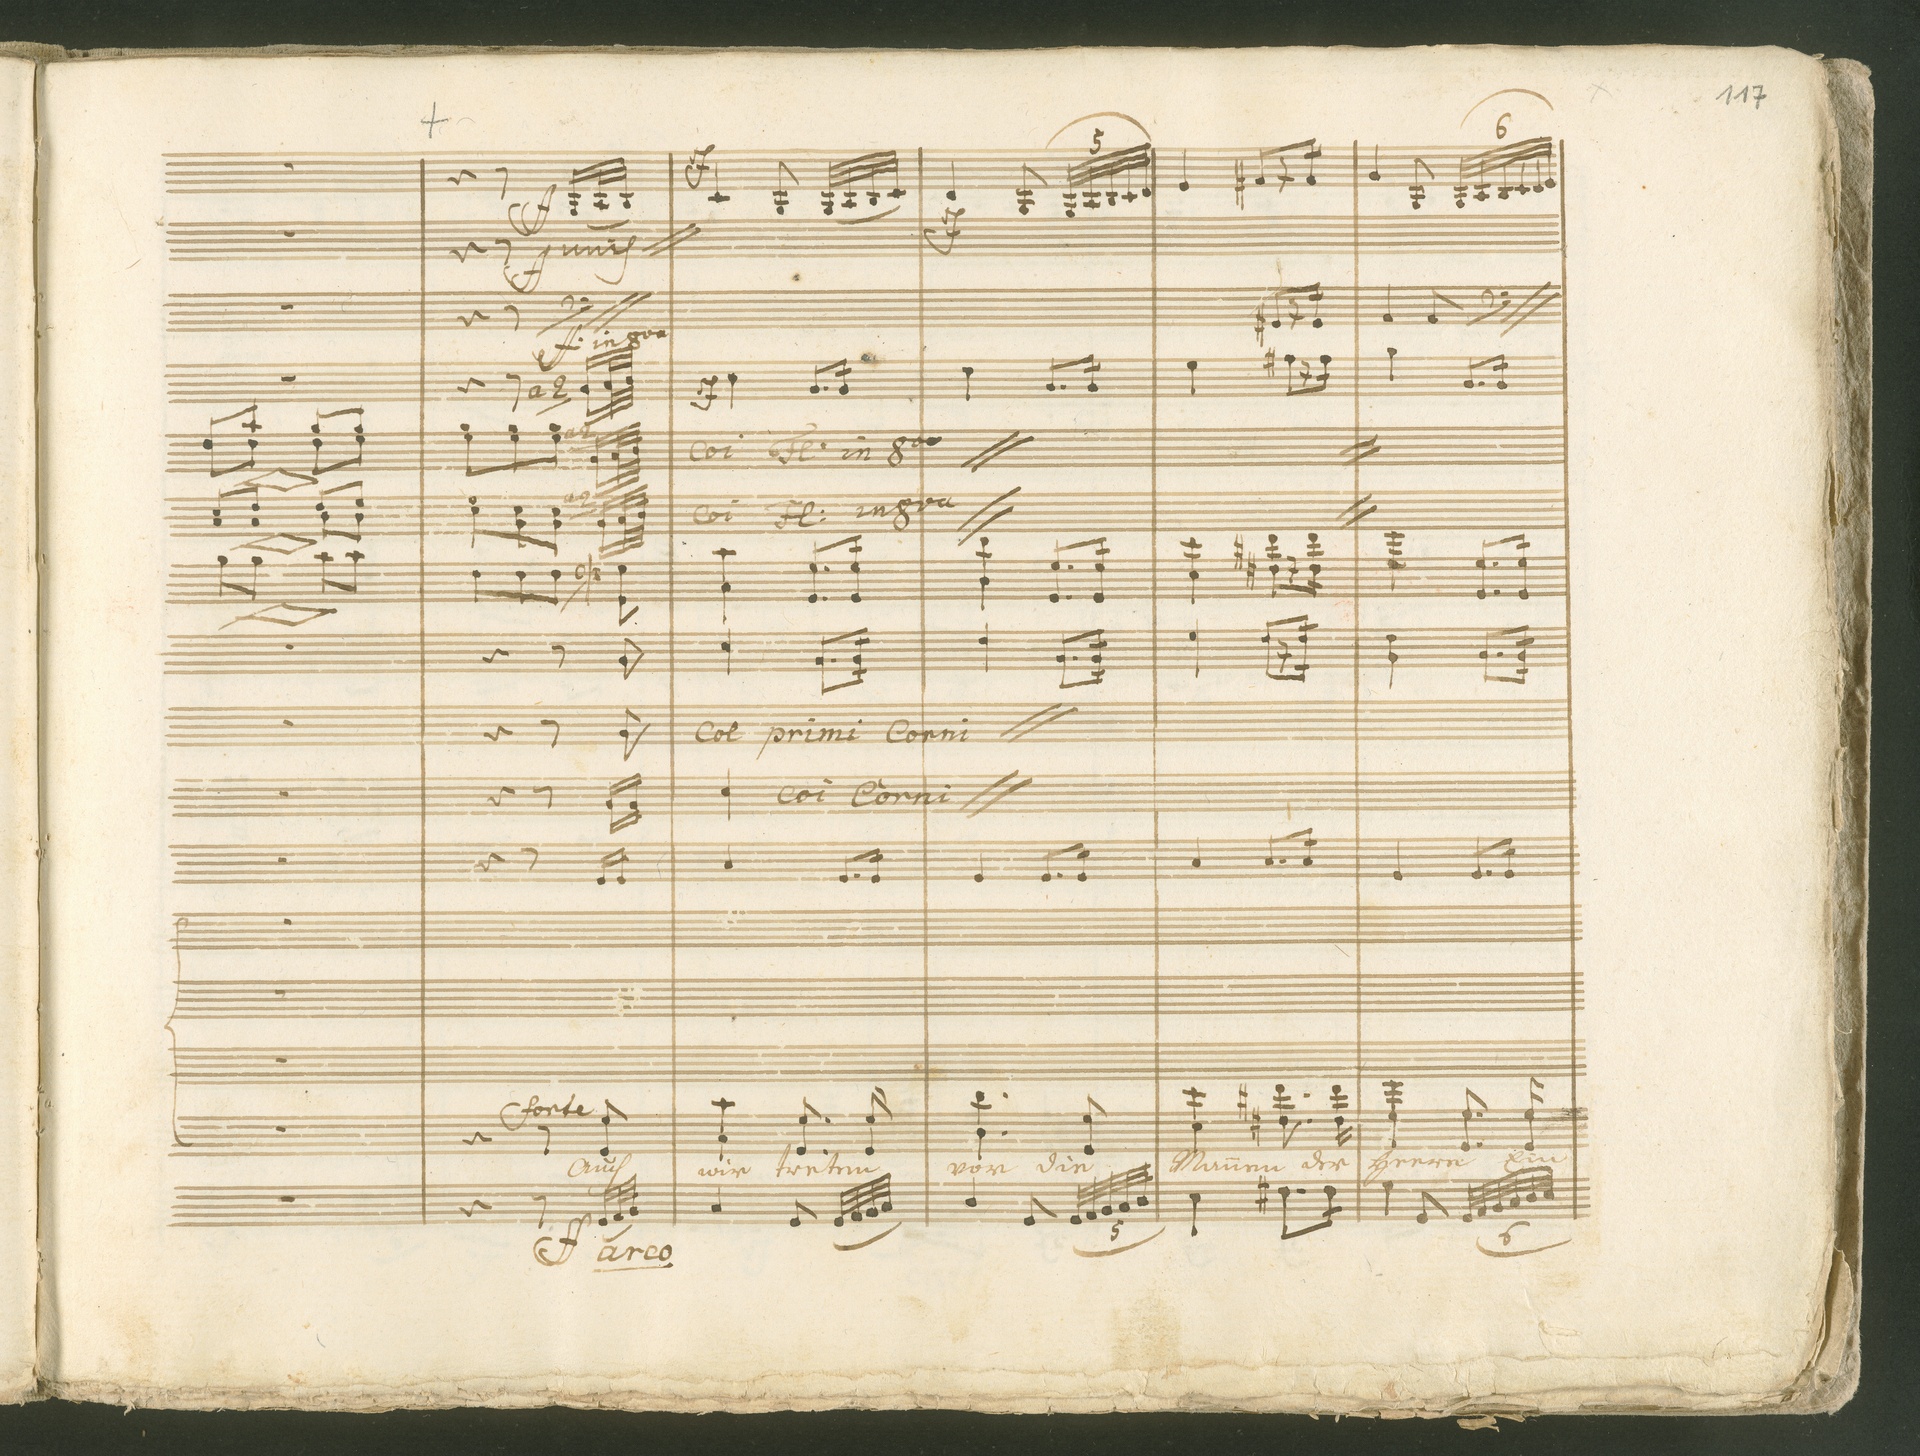 117
5
6
ff
ff unis
ff in 8va
a 2
a 2 coi Fl: in 8va
a 2 coi Fl: in 8va
col primi Corni
coi Corni
forte
Auch wir treten vor die Mañen der Heere Ein
5
6
ff arco